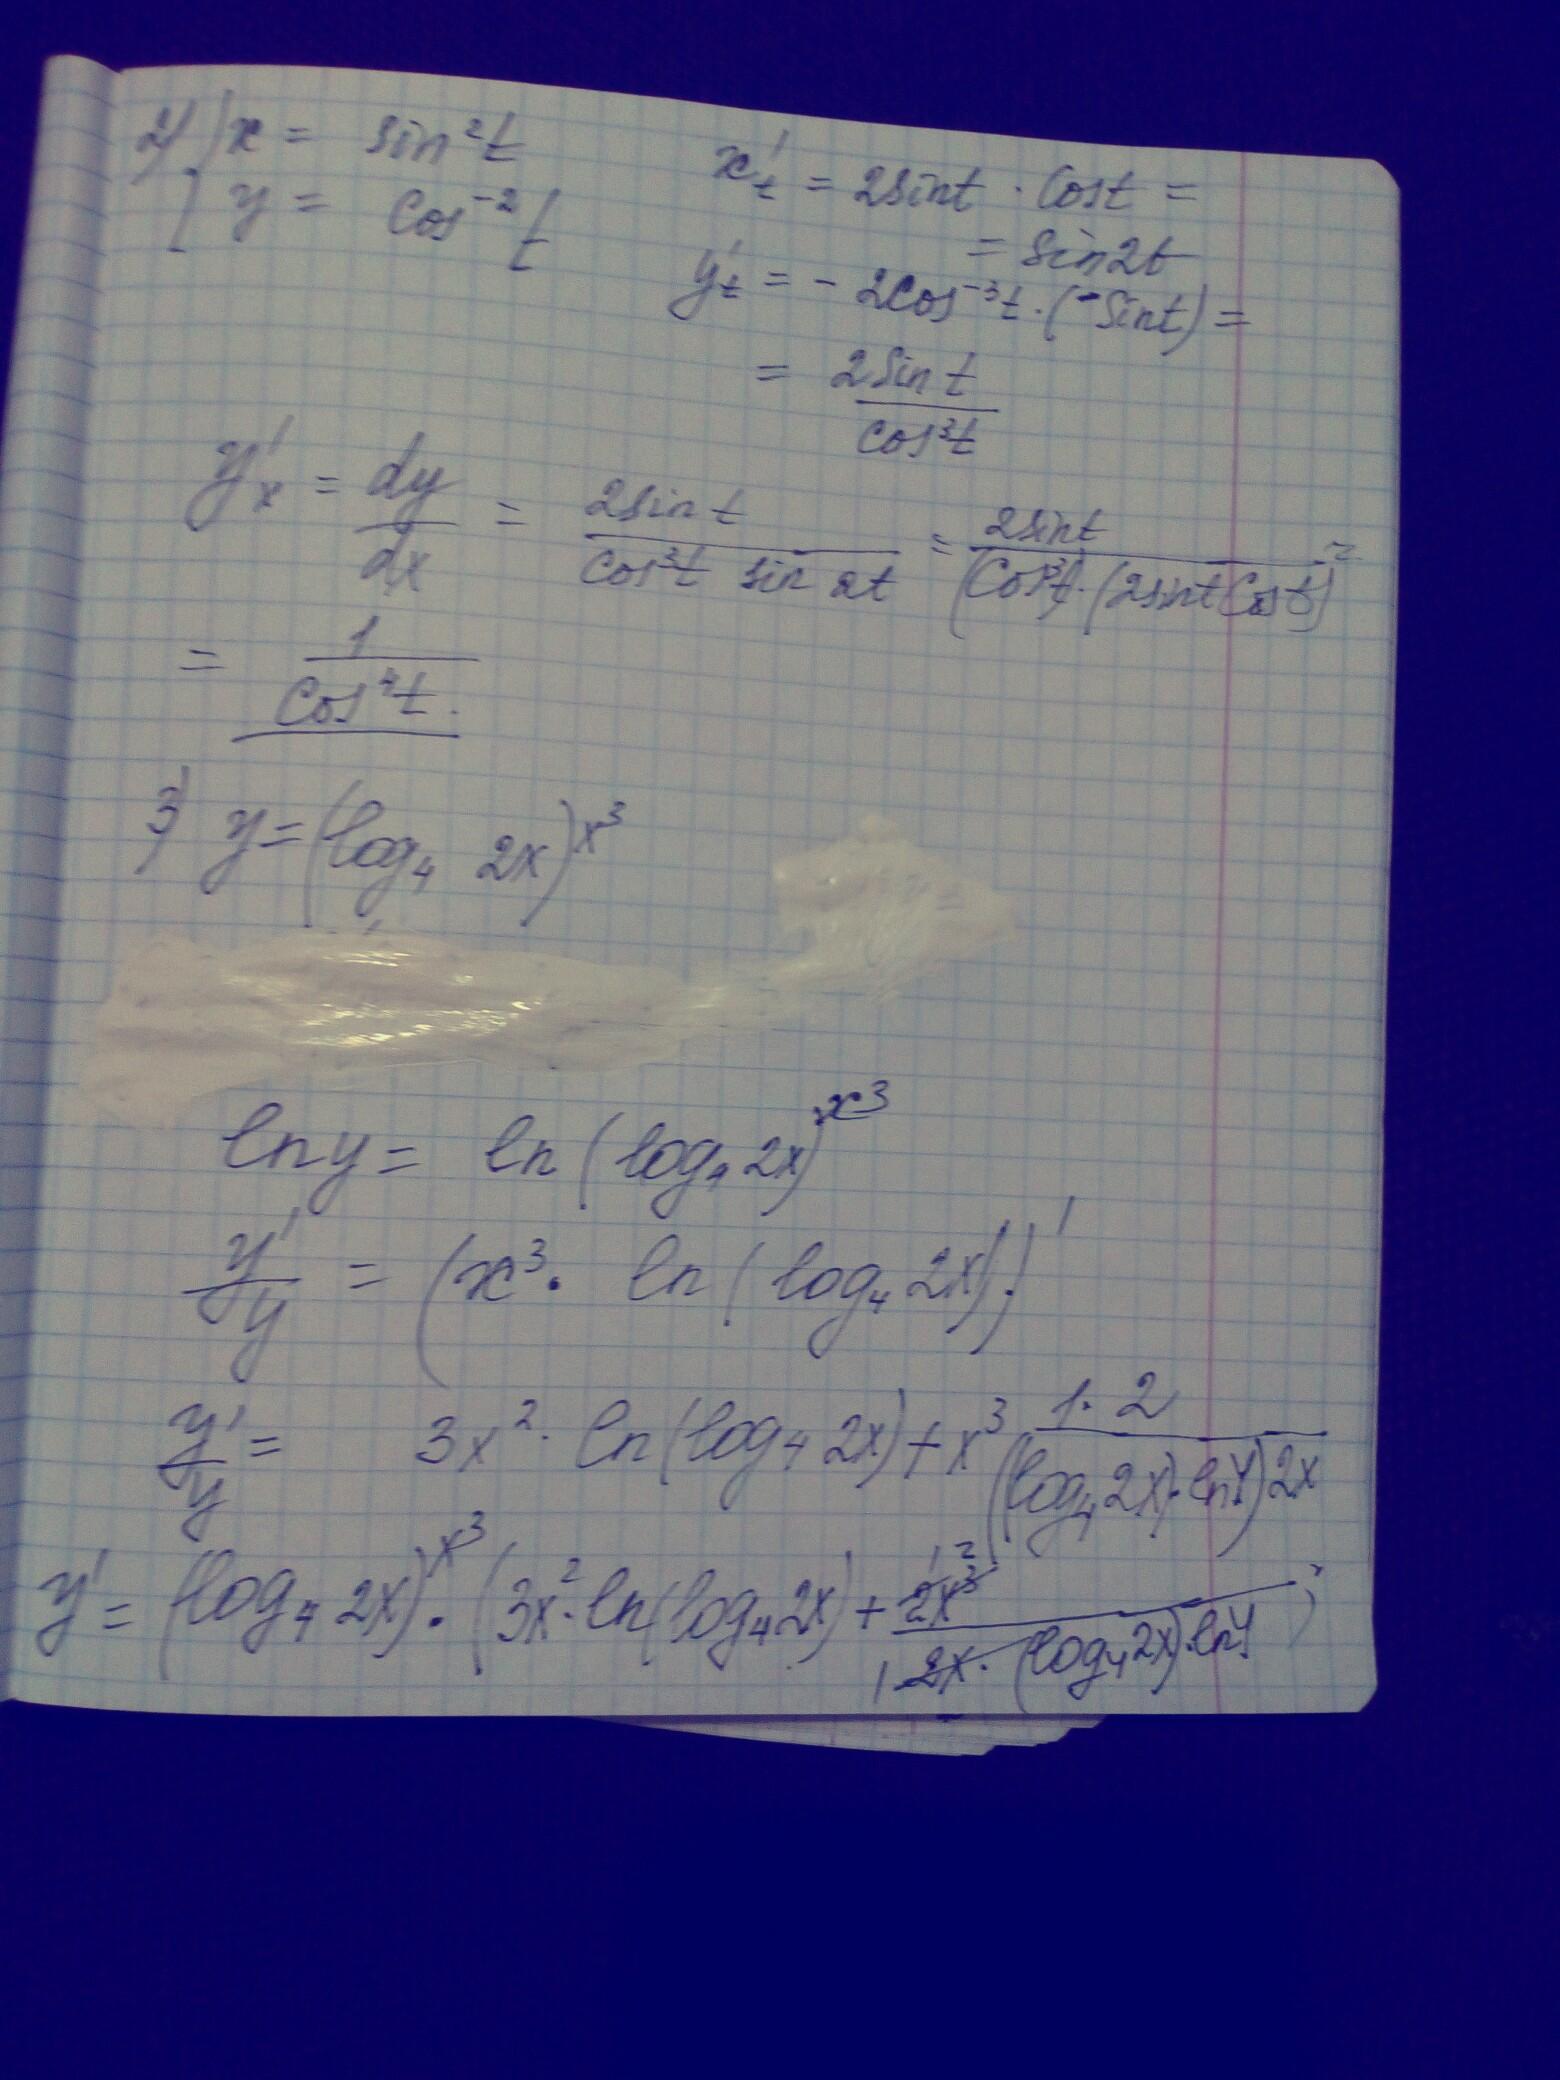 2) { x = sin²t
y = cos⁻²t
x't = 2sint · cost =
= sin2t
y't = - 2cos⁻³t · (-sint) =
= 2sin t / cos³t
y'x = dy/dx = 2sin t / cos³t sin 2t = 2sint / (cos³t) · (2sint cost) =
= 1 / cos⁴t.
3) y = (log₄ 2x)^x³
ln y = ln (log₄ 2x)^x³
y'/y = (x³ · ln (log₄ 2x))'
y'/y = 3x² · ln(log₄ 2x) + x³ 1·2 / (log₄ 2x) · ln4) 2x
y' = (log₄ 2x)^x³ · (3x² · ln(log₄ 2x) + 2x³ / 2x · (log₄ 2x) · ln4)